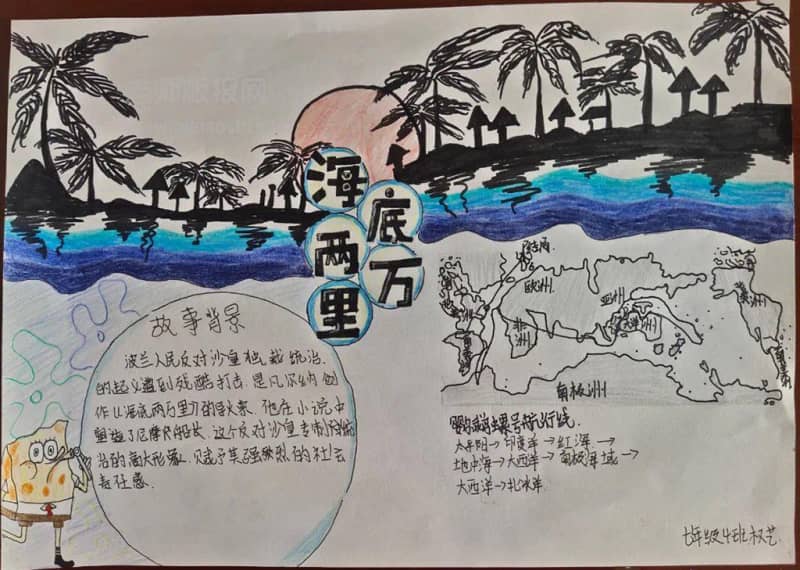 海底两万里
故事背景
波兰人民反对沙皇独裁统治
的起义遭到残酷打击,是凡尔纳创
作《海底两万里》的导火索.他在小说中
塑造了尼摩船长,这个反对沙皇专制统
治的高大形象,赋予其强烈的社会
责任感.
欧洲
亚洲
非洲
大洋洲
南极洲
鹦鹉螺号航行线.
太平洋→印度洋→红海→
地中海→大西洋→南极海域→
大西洋→北冰洋
七年级4班权艺